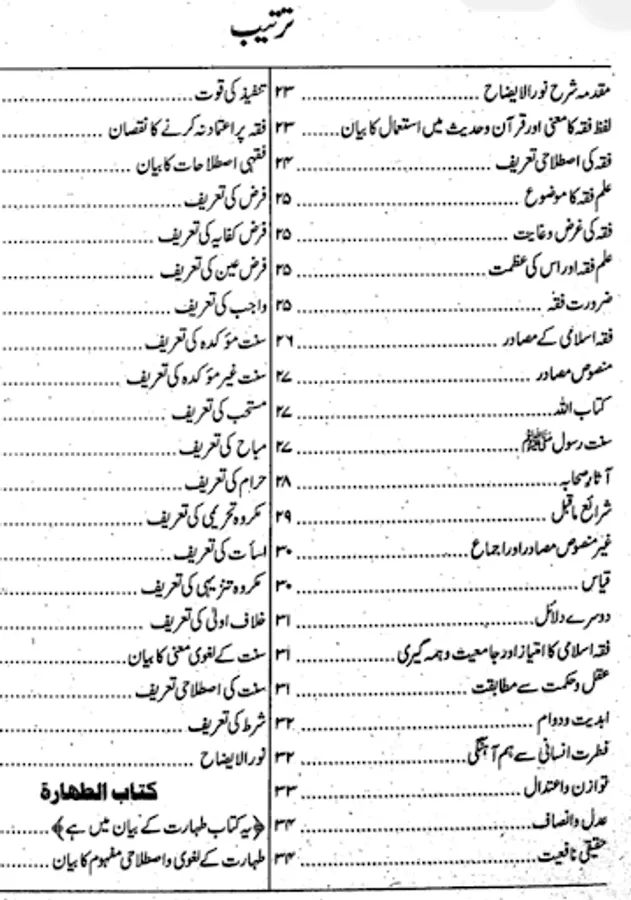 ترتیب
مقدمہ شرح نور الایضاح ........ ۲۳
لفظ فقہ کا معنی اور قرآن و حدیث میں استعمال کا بیان ........ ۲۳
فقہ کی اصطلاحی تعریف ........ ۲۴
علم فقہ کا موضوع ........ ۲۵
فقہ کی غرض و غایت ........ ۲۵
علم فقہ اور اس کی عظمت ........ ۲۵
ضرورت فقہ ........ ۲۵
فقہ اسلامی کے مصادر ........ ۲۶
منصوص مصادر ........ ۲۷
کتاب اللہ ........ ۲۷
سنت رسول ﷺ ........ ۲۷
آثار صحابہ ........ ۲۸
شرائع ما قبل ........ ۲۹
غیر منصوص مصادر اور اجماع ........ ۳۰
قیاس ........ ۳۰
دوسرے دلائل ........ ۳۱
فقہ اسلامی کا امتیاز اور جامعیت و ہمہ گیری ........ ۳۱
عقل و حکمت سے مطابقت ........ ۳۱
ابدیت و دوام ........ ۳۲
فطرت انسانی سے ہم آہنگی ........ ۳۲
توازن و اعتدال ........ ۳۳
عدل و انصاف ........ ۳۴
حقیقی نافعیت ........ ۳۴
تنفیذ کی قوت ........
فقہ پر اعتماد نہ کرنے کا نقصان ........
فقہی اصطلاحات کا بیان ........
فرض کی تعریف ........
فرض کفایہ کی تعریف ........
فرض عین کی تعریف ........
واجب کی تعریف ........
سنت مؤکدہ کی تعریف ........
سنت غیر مؤکدہ کی تعریف ........
مستحب کی تعریف ........
مباح کی تعریف ........
حرام کی تعریف ........
مکروہ تحریمی کی تعریف ........
اسأت کی تعریف ........
مکروہ تنزیہی کی تعریف ........
خلاف اولیٰ کی تعریف ........
سنت کے لغوی معنی کا بیان ........
سنت کی اصطلاحی تعریف ........
شرط کی تعریف ........
نور الایضاح ........
کتاب الطھارة
﴿یہ کتاب طہارت کے بیان میں ہے﴾ ........
طہارت کے لغوی و اصطلاحی مفہوم کا بیان ........